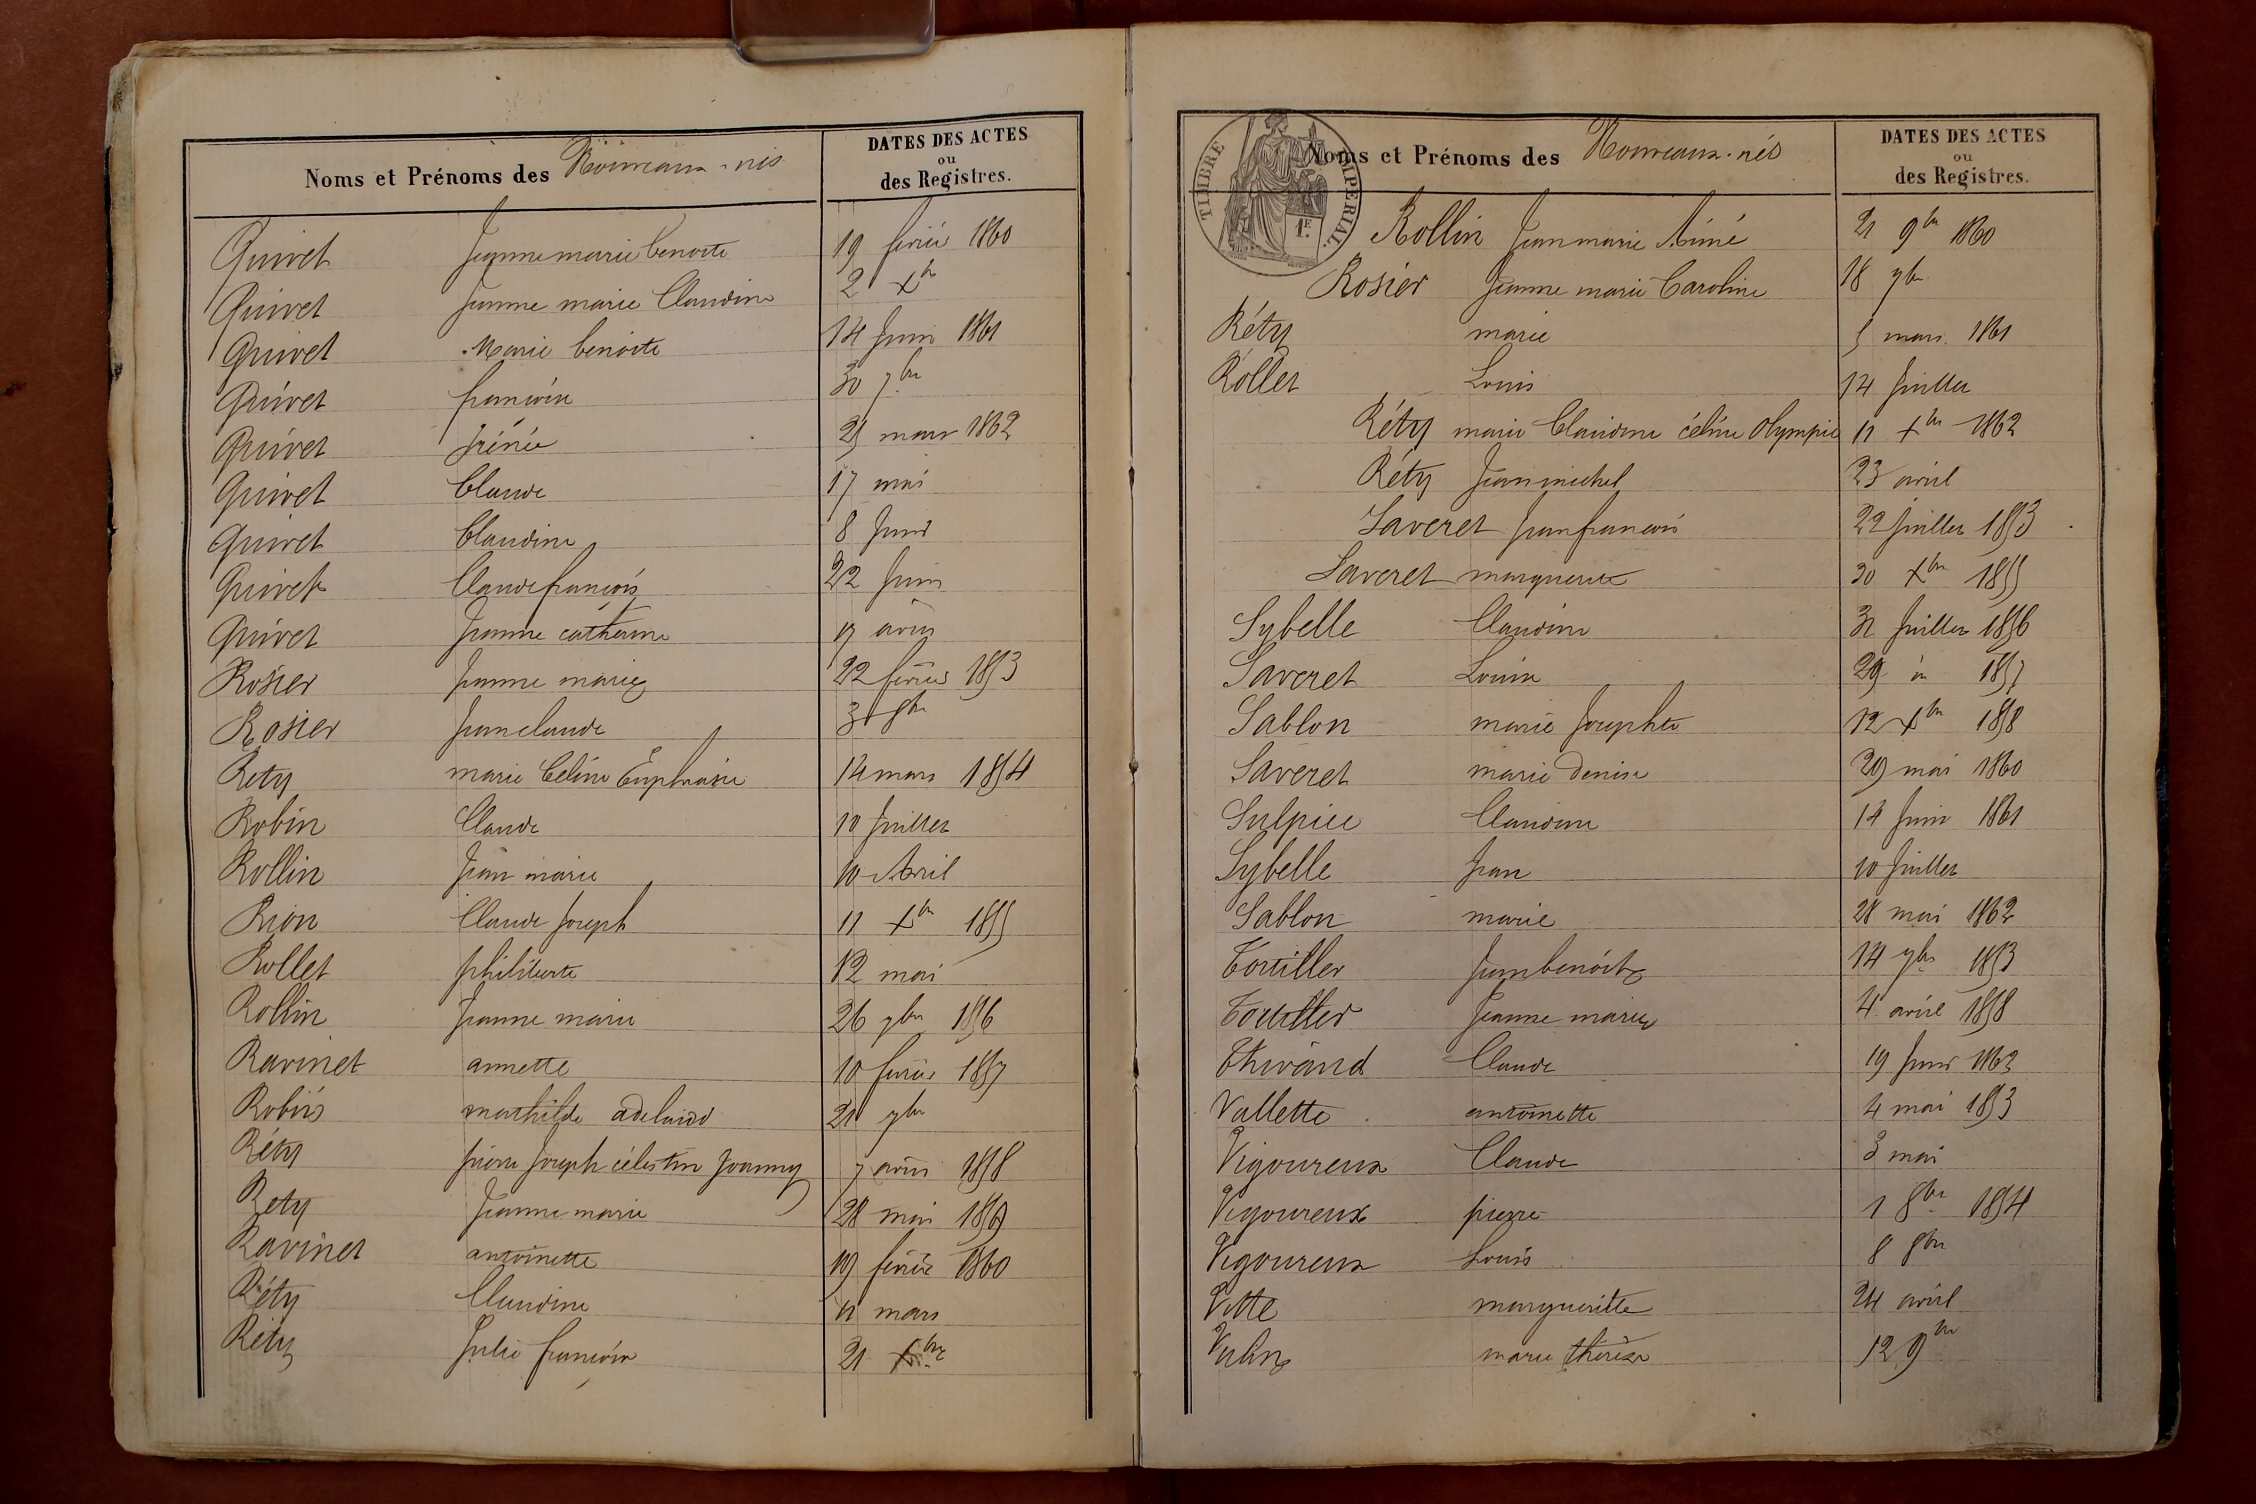 Noms et Prénoms des Nouveaux-nés
DATES DES ACTES
ou
des Registres.
Quivet Jeanne marie benoite 19 février 1860
Quivet Jeanne marie Claudine 2 Xbr
Quivet Marie benoite 14 Juin 1861
Quivet françoise 30 7bre
Quivet Irénée 25 mars 1862
Quivet Claude 17 mai
Quivet Claudine 8 Juin
Quivet Claude françois 22 Juin
Quivet Jeanne catherine 19 avril
Rosier Jeanne marie 22 février 1853
Rosier Jean claude 31 8bre
Rety marie Celine Euphrasie 14 mars 1854
Robin Claude 10 Juillet
Rollin Jean marie 10 Avril
Rion Claude Joseph 11 Xbre 1855
Rollet philiberte 12 mai
Rollin Jeanne marie 26 9bre 1856
Ravinet annette 10 février 1857
Robin mathilde adelaide 21 9bre
Réty pierre Joseph célestin Joanny 7 avril 1858
Rety Jeanne marie 28 mai 1859
Ravinet antoinette 19 février 1860
Réty Claudine 11 mars
Réty Julie françoise 21 Xbre
TIMBRE IMPERIAL.
1F.
Noms et Prénoms des Nouveaux-nés
DATES DES ACTES
ou
des Registres.
Rollin Jean marie Aimé 21 9bre 1860
Rosier Jeanne marie Caroline 18 7bre
Réty marie 5 mars 1861
Rollet Louis 14 Juillet
Réty marie Claudine céline Olympie 11 Xbre 1862
Réty Jean michel 23 avril
Saveret Jean françois 22 Juillet 1853
Saveret marguerite 30 Xbre 1855
Sybelle Claudine 31 Juillet 1856
Saveret Louise 29 1857
Sablon marie Josephte 12 Xbre 1858
Saveret marie Denise 29 mai 1860
Sulpice Claudine 14 Juin 1861
Sybelle Jean 10 Juillet
Sablon marie 28 mai 1862
Toutiller Jean benoit 14 9bre 1853
Toutiller Jeanne marie 4 avril 1858
Thivand Claude 19 Juin 1862
Vallette antoinette 4 mai 1853
Vigoureux Claude 3 mai
Vigoureux pierre 1 8bre 1854
Vigoureux Louis 8 8bre
Vitte marguerite 24 avril
Vulin marie thérèse 12 9bre